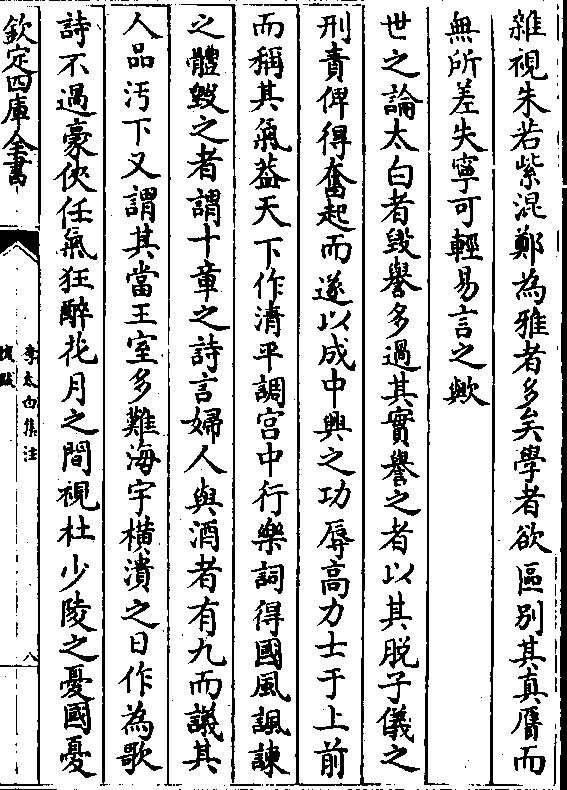 雜視朱若紫混鄭為雅者多矣學者欲區别其真贋而
無所差失寧可輕易言之歟
世之論太白者毀譽多過其實譽之者以其脱子儀之
刑責俾得奮起而遂以成中興之功辱高力士于上前
而稱其氣葢天下作清平調宫中行樂詞得國風諷諫
之體毀之者謂十章之詩言婦人與酒者有九而議其
人品汚下又謂其當王室多難海宇横潰之日作為歌
詩不過豪俠任氣狂醉花月之間視杜少陵之憂國憂
欽定四庫全書
李太白集注
後跋
八